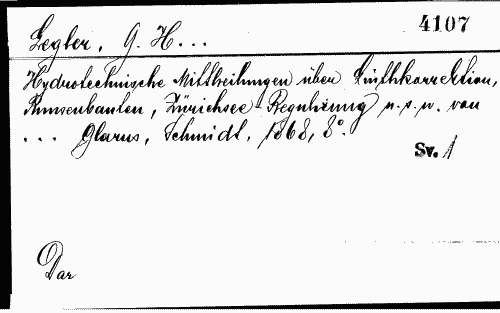 4107
Legler, G. H...
Hydrotechnische Mittheilungen über Linthkorrektion,
Runsenbauten, Zürichsee-Regulierung u. s. w. von
... Glarus, Schmidt, 1868, 8°.
Sv. 1
Dar